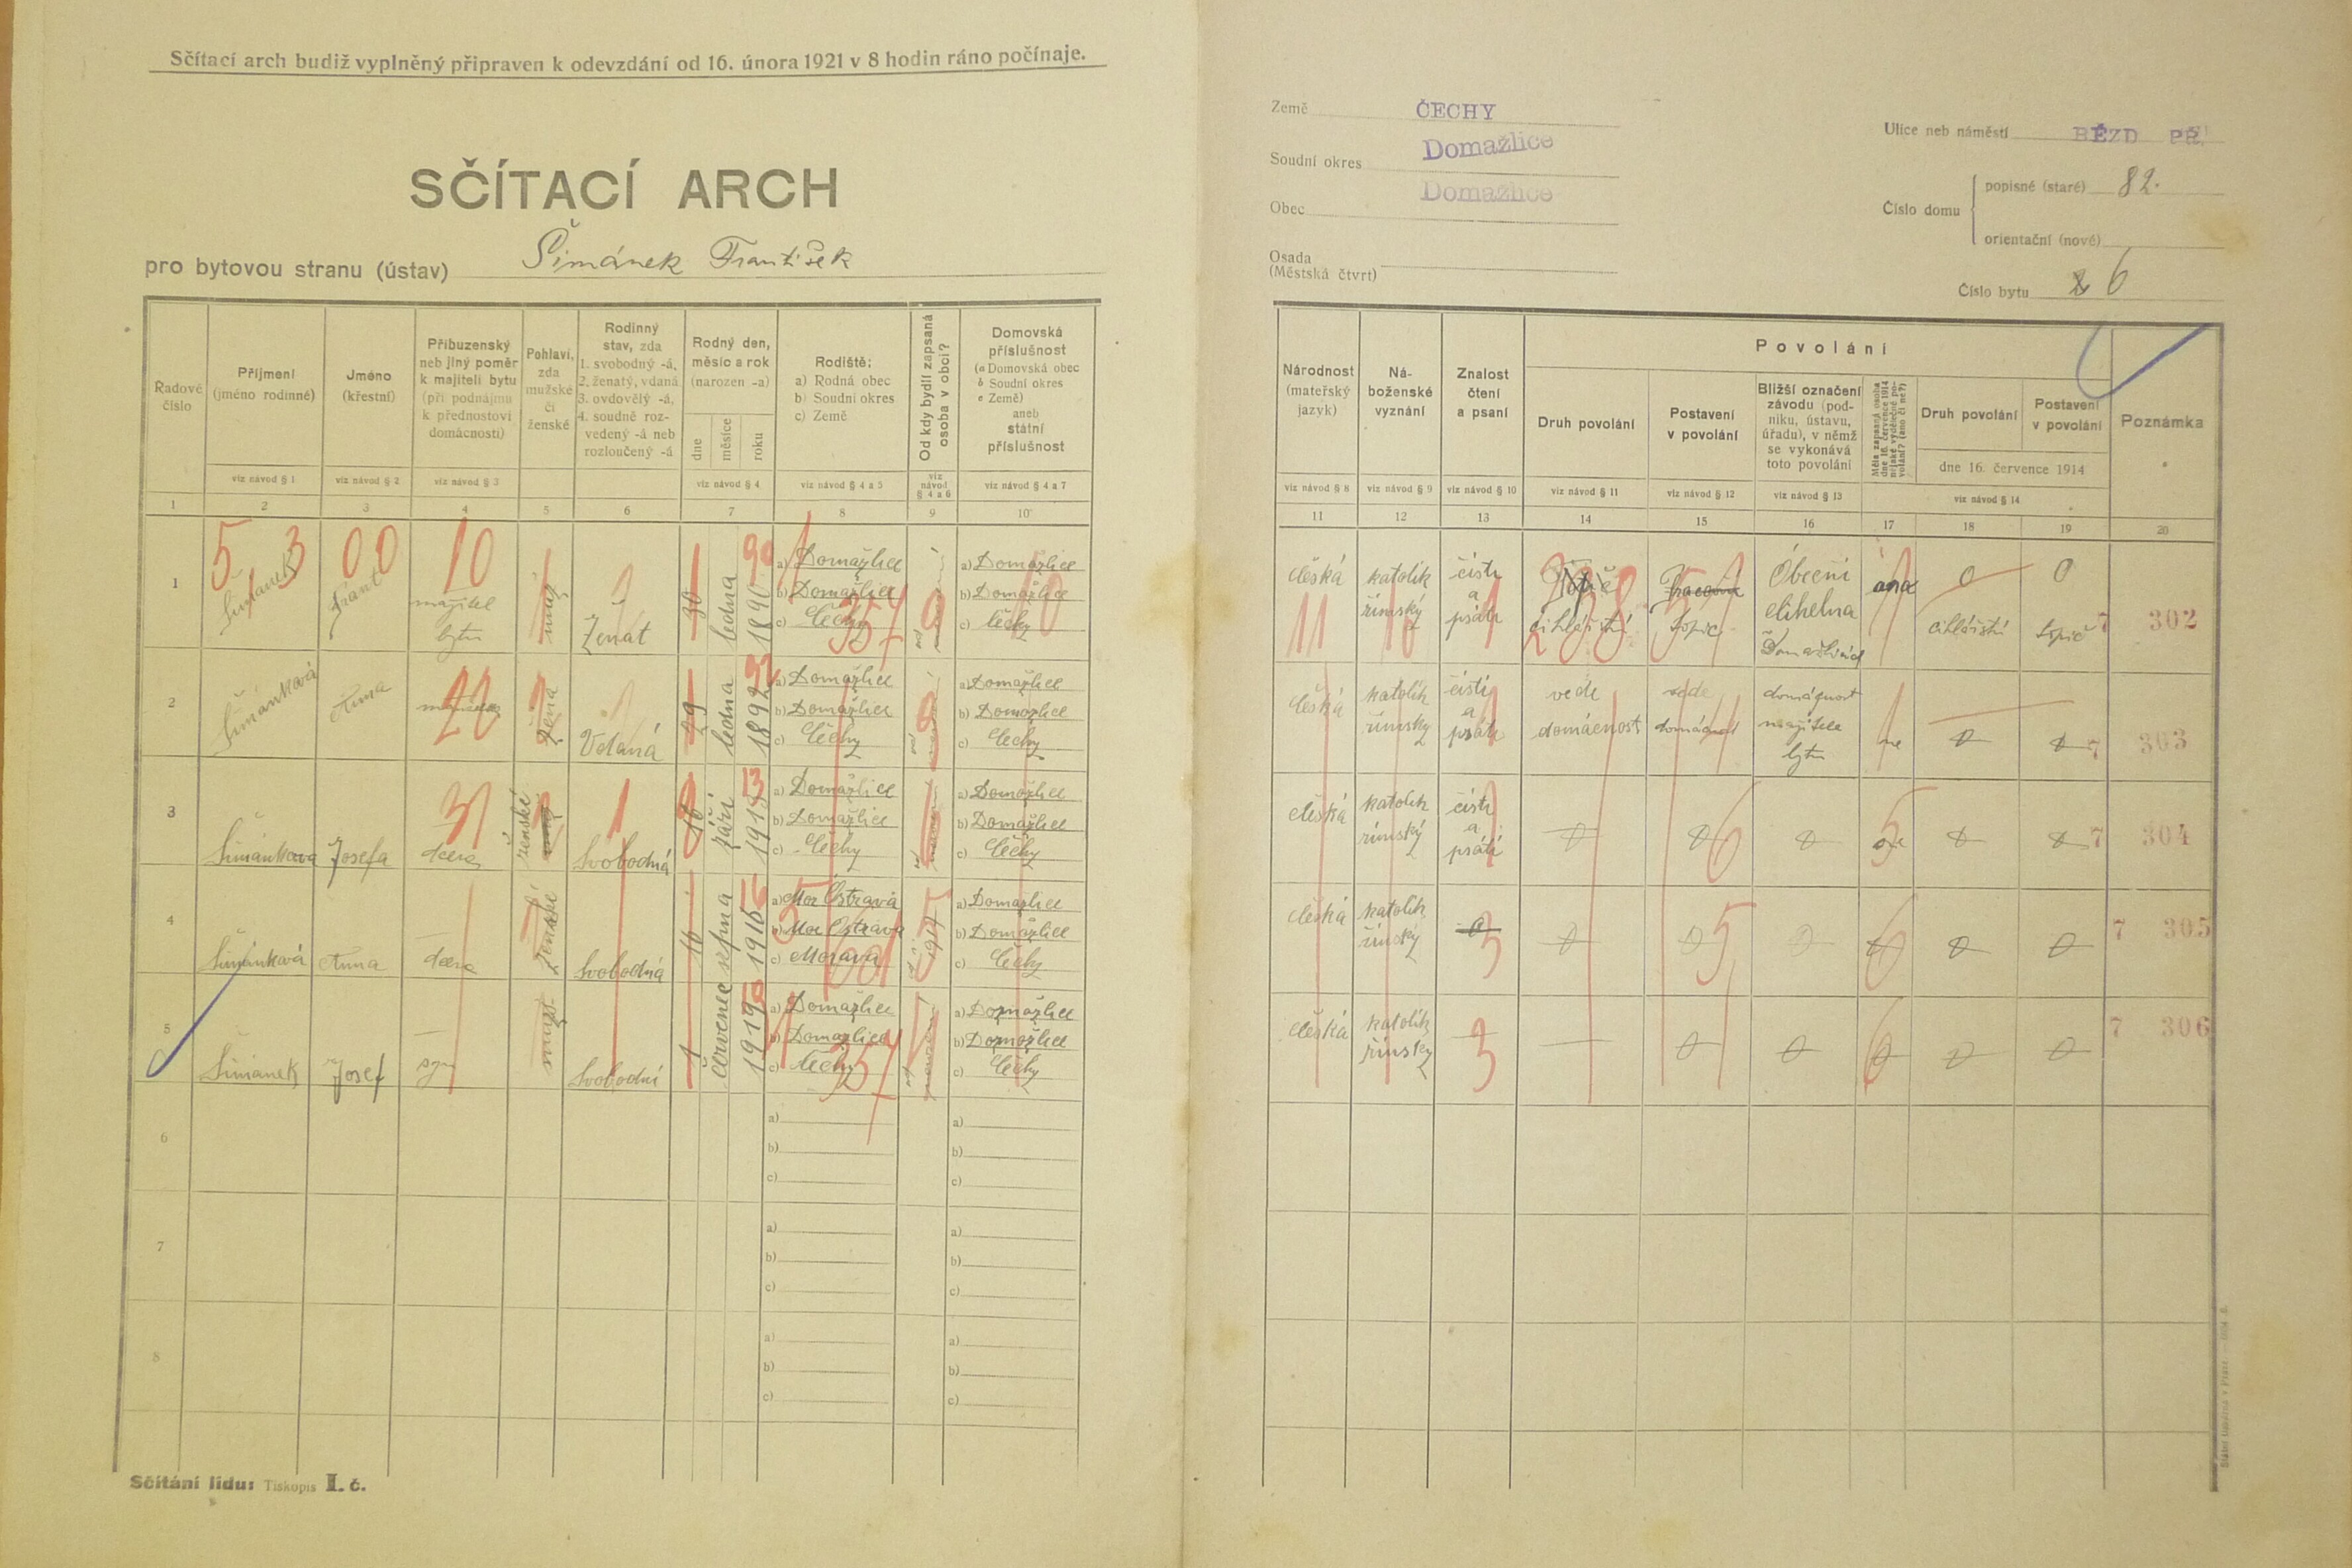 Sčítací arch budiž vyplněný připraven k odevzdání od 16. února 1921 v 8 hodin ráno počínaje.
SČÍTACÍ ARCH
pro bytovou stranu (ústav) Šimánek František
Země ČECHY
Soudní okres Domažlice
Obec Domažlice
Osada
(Městská čtvrť)
Ulice neb náměstí BĚZD PŘ.
Číslo domu
popisné (staré) 82.
orientační (nové)
Číslo bytu 6
Řadové číslo
Příjmení
(jméno rodinné)
viz návod § 1
Jméno
(křestní)
viz návod § 2
Příbuzenský
neb jiný poměr
k majiteli bytu
(při podnájmu
k přednostovi
domácnosti)
viz návod § 3
Pohlaví,
zda
mužské
či
ženské
Rodinný
stav, zda
1. svobodný -á,
2. ženatý, vdaná
3. ovdovělý -á,
4. soudně roz-
vedený -á neb
rozloučený -á
Rodný den,
měsíc a rok
(narozen -a)
dne
měsíce
roku
viz návod § 4
Rodiště:
a) Rodná obec
b) Soudní okres
c) Země
viz návod § 4 a 5
Od kdy bydlí zapsaná
osoba v obci?
viz
návod
§ 4 a 6
Domovská
příslušnost
(a Domovská obec
b Soudní okres
c Země)
aneb
státní
příslušnost
viz návod § 4 a 7
Národnost
(mateřský
jazyk)
viz návod § 8
Ná-
boženské
vyznání
viz návod § 9
Znalost
čtení
a psaní
viz návod § 10
Povolání
Druh povolání
viz návod § 11
Postavení
v povolání
viz návod § 12
Bližší označení
závodu (pod-
niku, ústavu,
úřadu), v němž
se vykonává
toto povolání
viz návod § 13
Měla zapsaná osoba
dne 16. července 1914
nějaké výdělečné po-
volání? (ano či ne?)
Druh povolání
Postavení
v povolání
dne 16. července 1914
viz návod § 14
Poznámka
1 2 3 4 5 6 7 8 9 10
11 12 13 14 15 16 17 18 19 20
1 Šimánek Frant majitel bytu muž Ženat 30 ledna 1890
a) Domažlice
b) Domažlice
c) Čechy
a) Domažlice
b) Domažlice
c) Čechy
česká katolík římský čísti a psáti
cihlářství topič Obecní cihelna
ano cihlářství topič 7 302
2 Šimánková Anna žena Vdaná 29 ledna 1892
a) Domažlice
b) Domažlice
c) Čechy
a) Domažlice
b) Domažlice
c) Čechy
česká katolík římský čísti a psáti
vede domácnost vede domácnost domácnost majitele bytu
ne 0 0 7 303
3 Šimánková Josefa dcera ženské Svobodná září 1913
a) Domažlice
b) Domažlice
c) Čechy
a) Domažlice
b) Domažlice
c) Čechy
česká katolík římský čísti a psáti
0 0 0 0 0 7 304
4 Šimánková Anna dcera ženské Svobodná 16 srpna 1916
a) Mor Ostrava
b) Mor Ostrava
c) Morava
1917
a) Domažlice
b) Domažlice
c) Čechy
česká katolík římský 0
0 0 0 0 0 0 7 305
5 Šimánek Josef syn Svobodní 1 červenec 1919
a) Domažlice
b) Domažlice
c) Čechy
a) Domažlice
b) Domažlice
c) Čechy
česká katolík římský
0 0 0 0 0 7 306
6
a)
b)
c)
a)
b)
c)
7
a)
b)
c)
a)
b)
c)
8
a)
b)
c)
a)
b)
c)
Sčítání lidu: Tiskopis I. č.